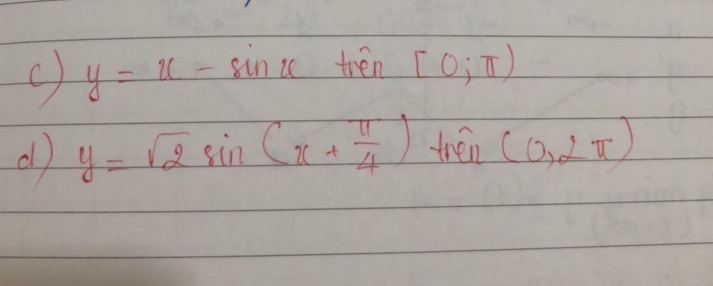 c) y = x - sin x trên [0; π)
d) y = √2 sin (x + π/4) trên (0, 2π)